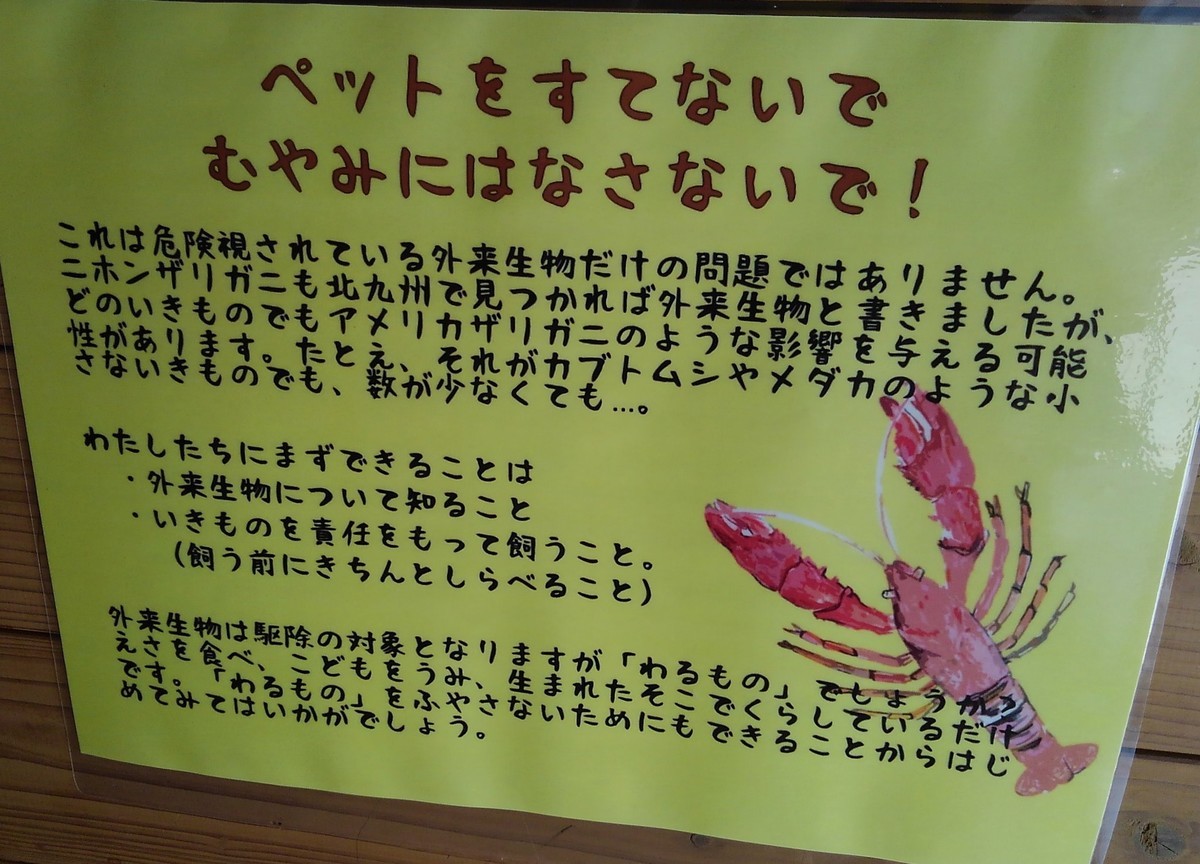 ペットをすてないで
むやみにはなさないで！
これは危険視されている外来生物だけの問題ではありません。
ニホンザリガニも北九州で見つかれば外来生物と書きましたが、
どのいきものでもアメリカザリガニのような影響を与える可能
性があります。たとえ、それがカブトムシやメダカのような小
さないきものでも、数が少なくても…。
わたしたちにまずできることは
・外来生物について知ること
・いきものを責任をもって飼うこと。
（飼う前にきちんとしらべること）
外来生物は駆除の対象となりますが「わるもの」でしょうか？
えさを食べ、こどもをうみ、生まれたそこでくらしているだけ
です。「わるもの」をふやさないためにもできることからはじ
めてみてはいかがでしょう。